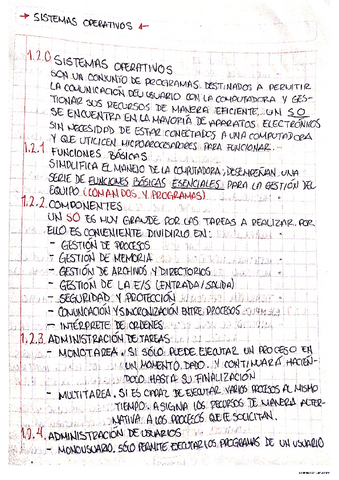 → SISTEMAS OPERATIVOS ←
1.2.0 SISTEMAS OPERATIVOS
SON UN CONJUNTO DE PROGRAMAS DESTINADOS A PERMITIR
LA COMUNICACIÓN DEL USUARIO CON LA COMPUTADORA Y GES-
TIONAR SUS RECURSOS DE MANERA EFICIENTE. UN SO
SE ENCUENTRA EN LA MAYORIA DE APARATOS ELECTRÓNICOS
SIN NECESIDAD DE ESTAR CONECTADOS A UNA COMPUTADORA
Y QUE UTILICEN MICROPROCESADORES PARA FUNCIONAR.
1.2.1 FUNCIONES BÁSICAS
SIMPLIFICA EL MANEJO DE LA COMPUTADORA, DESEMPEÑAN UNA
SERIE DE FUNCIONES BÁSICAS ESENCIALES PARA LA GESTIÓN DEL
EQUIPO (COMANDOS Y PROGRAMAS)
1.2.2 COMPONENTES
UN SO ES MUY GRANDE POR LAS TAREAS A REALIZAR. POR
ELLO ES CONVENIENTE DIVIDIRLO EN:
- GESTIÓN DE PROCESOS
- GESTIÓN DE MEMORIA
- GESTIÓN DE ARCHIVOS Y DIRECTORIOS
- GESTIÓN DE LA E/S (ENTRADA/SALIDA)
- SEGURIDAD Y PROTECCIÓN
- COMUNICACIÓN Y SINCRONIZACIÓN ENTRE PROCESOS
- INTÉRPRETE DE ORDENES
1.2.3 ADMINISTRACIÓN DE TAREAS
- MONOTAREA. SI SÓLO PUEDE EJECUTAR UN PROCESO EN
UN MOMENTO DADO. Y CONTINUARÁ HACIEN-
DOLO HASTA SU FINALIZACIÓN
- MULTITAREA. SI ES CAPAZ DE EJECUTAR VARIOS PROCESOS AL MISMO
TIEMPO. ASIGNA LOS RECURSOS DE MANERA ALTER-
NATIVA A LOS PROCESOS QUE LE SOLICITAN.
1.2.4. ADMINISTRACIÓN DE USUARIOS
- MONOUSUARIO. SÓLO PERMITE EJECUTAR LOS PROGRAMAS DE UN USUARIO